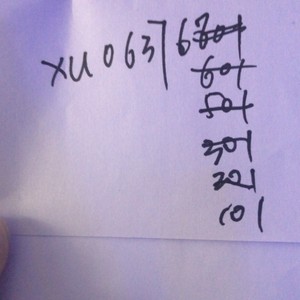 XU0637 6701
601
501
301
201
101